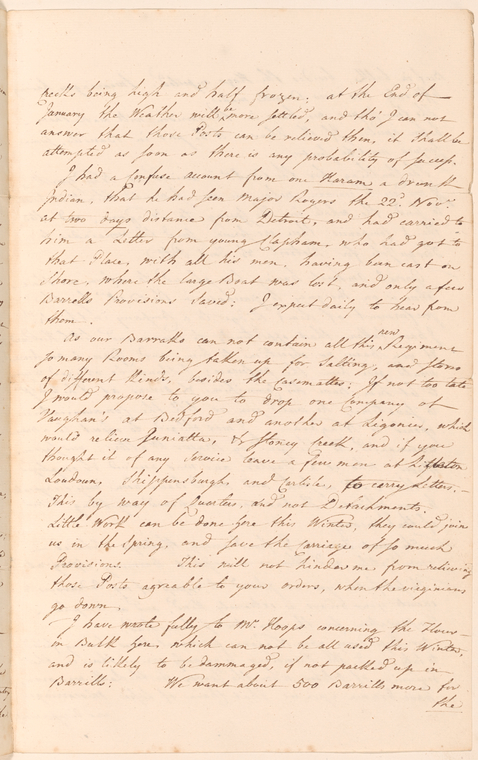 creeks being high and half frozen; at the End of
January the Weather will be more settled, and tho' I can not
answer that those Posts can be relieved then, it shall be
attempted as soon as there is any probability of success.
I had a confuse account from one Haram a drunk
Indian, That he had seen Major Rogers the 22d. Novr.
at two Days distance from Detroit, and had carried to
him a Letter from young Clapham, who had got to
that Place, with all his men, having been cast on
Shore, where the large Boat was lost, and only a few
Barrells Provisions saved: I expect daily to hear from
them.
As our Barraks can not contain all this new Regiment
so many Rooms being taken up for Salting, and Stores
of different kinds, besides the Casemattes: If not too late
I would propose to you to drop one Company of
Vaughan's at Bedford and another at Ligonier, which
would relieve Juniatta, & Stoney Creek, and if you
thought it of any Service leave a few men at Littleton
Loudoun, Shippensburgh, and Carlisle, to carry Letters;—
This by way of Quarters, and not Detachments.
Little Work can be done here this Winter, they could join
us in the Spring, and save the carriage of so much
Provisions. This will not hinder me from relieving
those Posts agreable to your orders, when the Virginians
go down.
I have wrote fully to Mr. Hoops concerning the Flower
in Bulk here, which can not be all used this Winter,
and is likely to be dammaged, if not packed up in
Barrills: We want about 500 Barrills more for
the